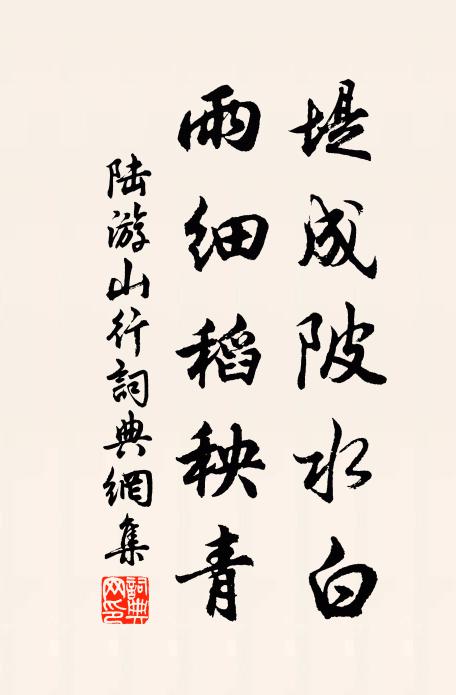 堤成陂水白
雨细稻秧青
陆游山行詞典網集
詞典网印